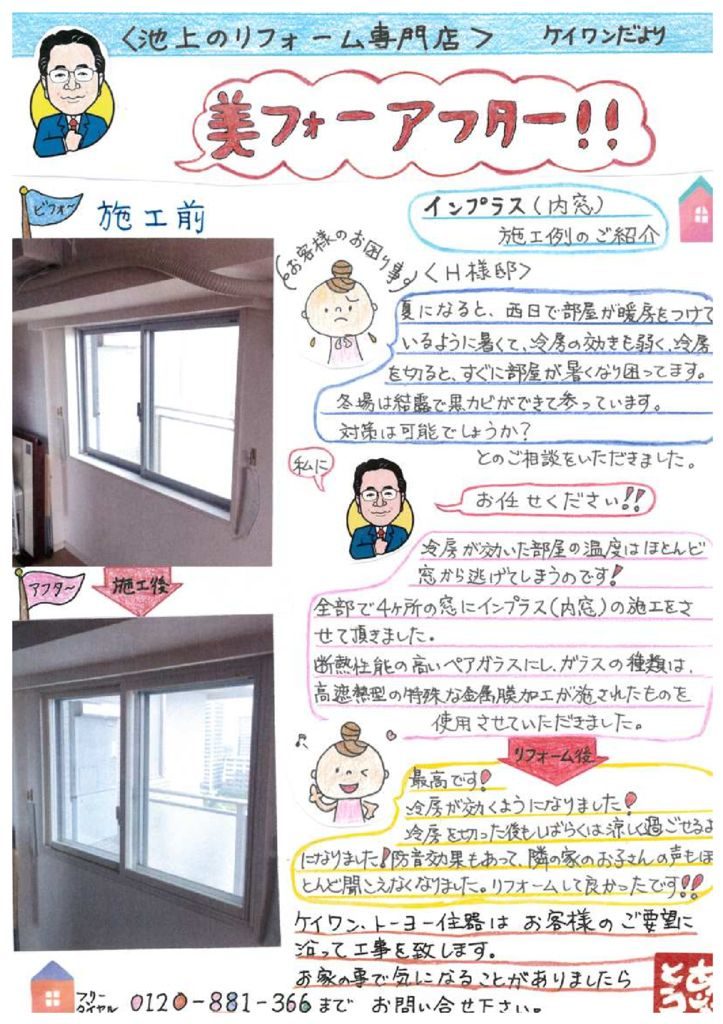 ＜池上のリフォーム専門店＞ ケイワンだより
美フォーアフター!!
ビフォ〜 施工前
インプラス(内窓)
施工例のご紹介
お客様のお困り事
＜H様邸＞
夏になると、西日で部屋が暖房をつけて
いるように暑くて、冷房の効きも弱く、冷房
を切ると、すぐに部屋が暑くなり困ってます。
冬場は結露で黒カビができて参っています。
対策は可能でしょうか?
とのご相談をいただきました。
私に
お任せください!!
冷房が効いた部屋の温度はほとんど
窓から逃げてしまうのです!
アフタ〜 施工後
全部で4ヶ所の窓にインプラス(内窓)の施工をさ
せて頂きました。
断熱性能の高いペアガラスにし、ガラスの種類は、
高遮熱型の特殊な金属膜加工が施されたものを
使用させていただきました。
リフォーム後
最高です!
冷房が効くようになりました!
冷房を切った後もしばらくは涼しく過ごせるよ
になりました!防音効果もあって、隣の家のお子さんの声もほ
とんど聞こえなくなりました。リフォームして良かったです!!
ケイワン、トーヨー住器は お客様の ご要望に
沿って工事を致します。
お家の事で気になることがありましたら
フリーダイヤル 0120-881-366まで お問い合せ下さい。